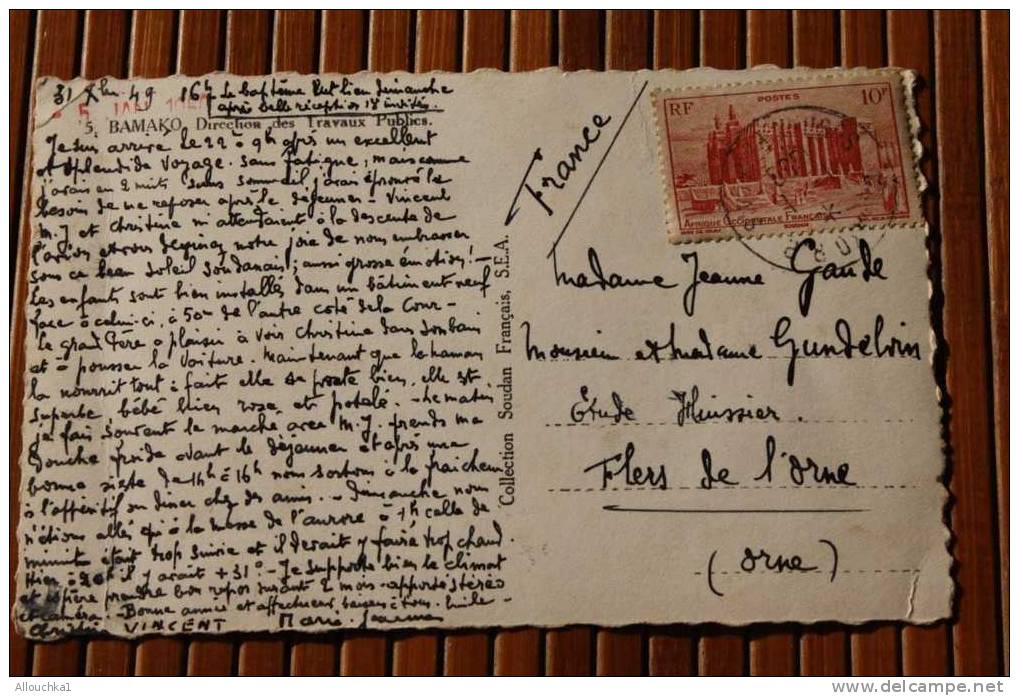 31 Xbre 49 16h Le baptême eut lieu dimanche
après belle réception 18 invités.
5 JAN 19
5. BAMAKO Direction des Travaux Publics.
Je suis arrivé le 22 à 9h après un excellent
et splendide voyage. Sans fatigue; mais comme
j'avais eu 2 nuits sans sommeil j'avais éprouvé le
besoin de me reposer après le déjeuner - Vincent
M. J et Christine m'attendaient à la descente de
l'avion et vous devinez notre joie de nous embrasser
sous ce beau soleil soudanais; aussi grosse émotion! -
Les enfants sont bien installés dans un bâtiment neuf
face à celui-ci, à 50m de l'autre coté de la Cour -
Le grand Père a plaisir à voir Christine dans son bain
et à pousser la voiture. Maintenant que la maman
la nourrit tout à fait elle se porte bien, elle est
superbe, bébé bien rose et potelé. - Le matin
je fais souvent la marche avec M. J. prends ma
Douche froide avant le déjeuner et après une
bonne sieste de 14h à 16h nous sortons à la fraicheur
à l'apéritif ou diner chez des amis. - Dimanche nous
n'étions allés qu'à la messe de l'aurore à 7h celle de
minuit était trop suivie et il devait y faire trop chaud.
Hier à 20h il y avait +31°. - Je supporte bien le climat
et espère prendre bon repos durant 2 mois - apporté stéréo
et caméra. - Bonne année et affectueux baisers à tous. Emile -
Christine VINCENT Marie-Jeanne
Collection Soudan Français, S.E.A.
France
RF POSTES 10F
AFRIQUE OCCIDENTALE FRANÇAISE
SOUDAN
Madame Jeanne Gande
Monsieur et Madame Gundelwin
Etude Huissier.
Flers de l'Orne
(Orne)
Allouchka1
www.delcampe.net